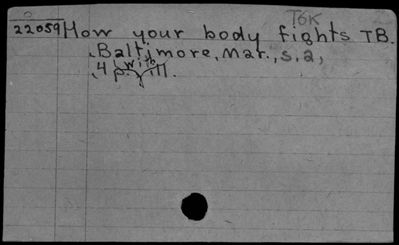 T6K
22059 How your body fights TB.
Baltimore, Mar., s.a,
4 p. with ill.